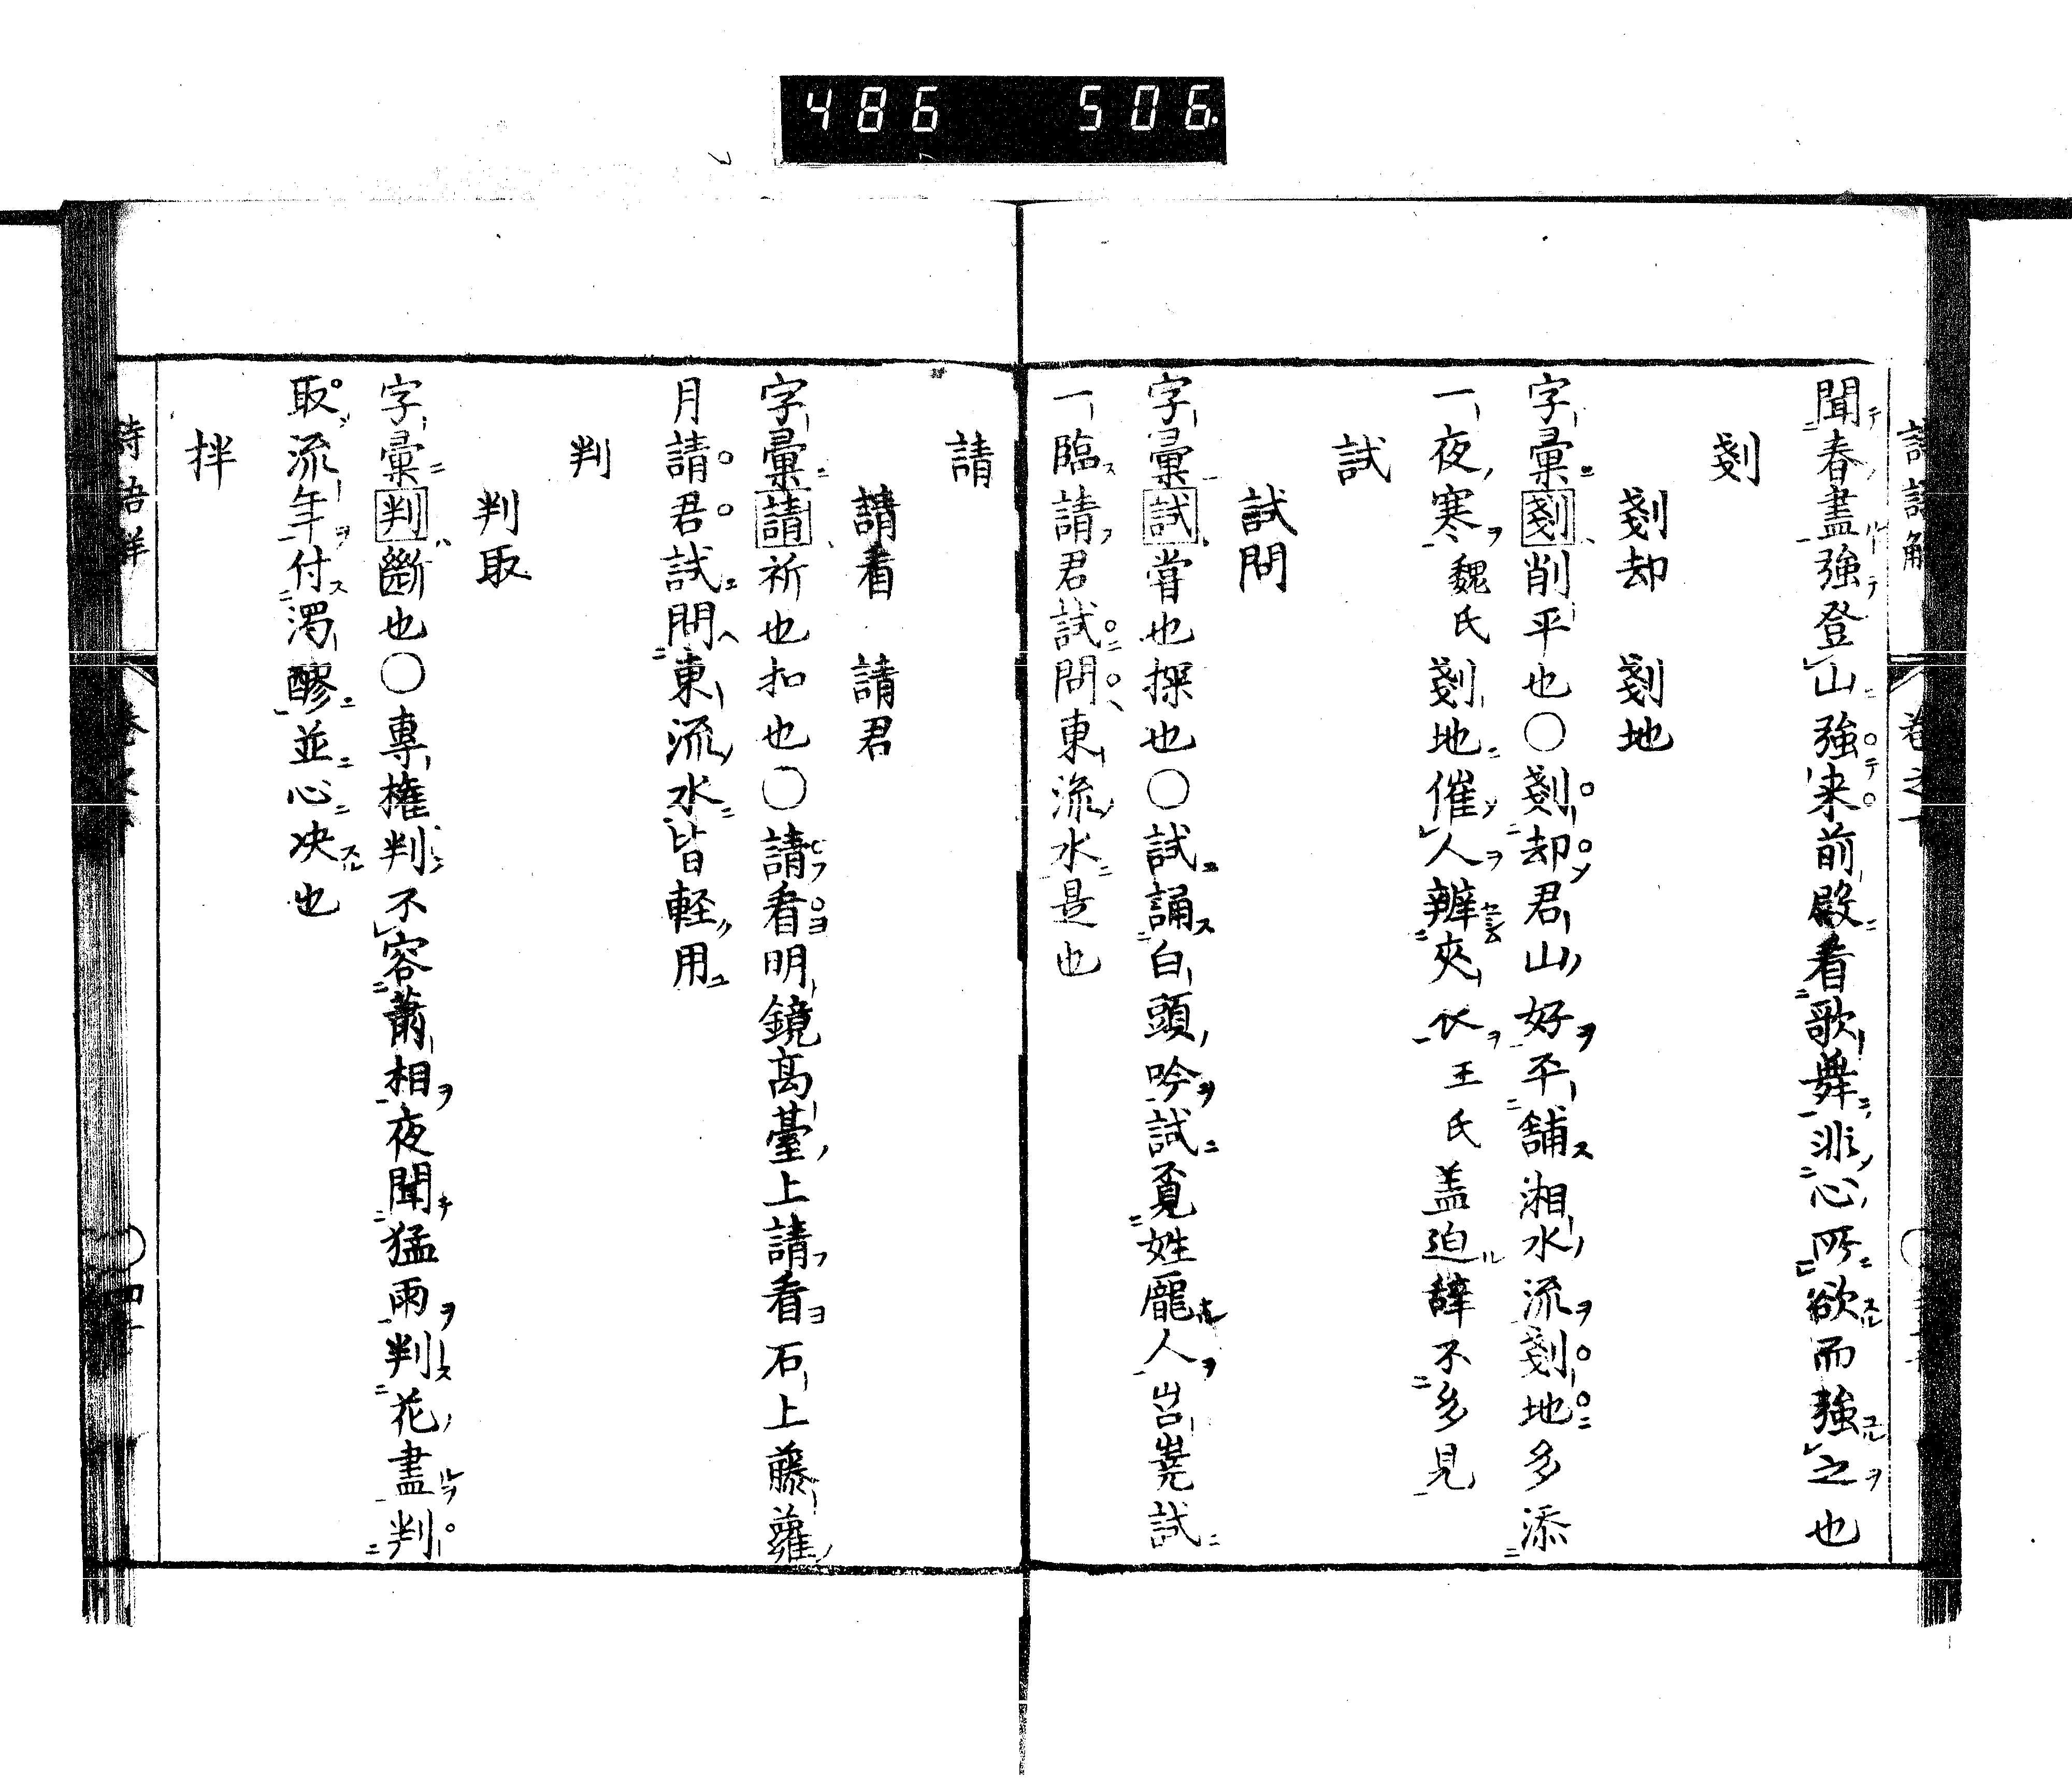 486 506
聞春盡強登山強来前殿看歌舞非心所欲而強之也
剗
剗却 剗地
字彙剗削平也〇剗却君山好平舗湘水流剗地多添
一夜寒魏氏剗地催人辨夾衣王氏盖迫辞不多見
試
試問
字彙試嘗也探也〇試誦白頭吟試覓姓龐人岧嶤試
一臨請君試問東流水是也
請
請看 請君
字彙請祈也扣也〇請看明鏡高臺上請看石上藤蘿
月請君試問東流水皆軽用
判
判取
字彙判斷也〇專権判不容蕭相夜聞猛雨判花盡判
取流年付濁醪並心决也
拌